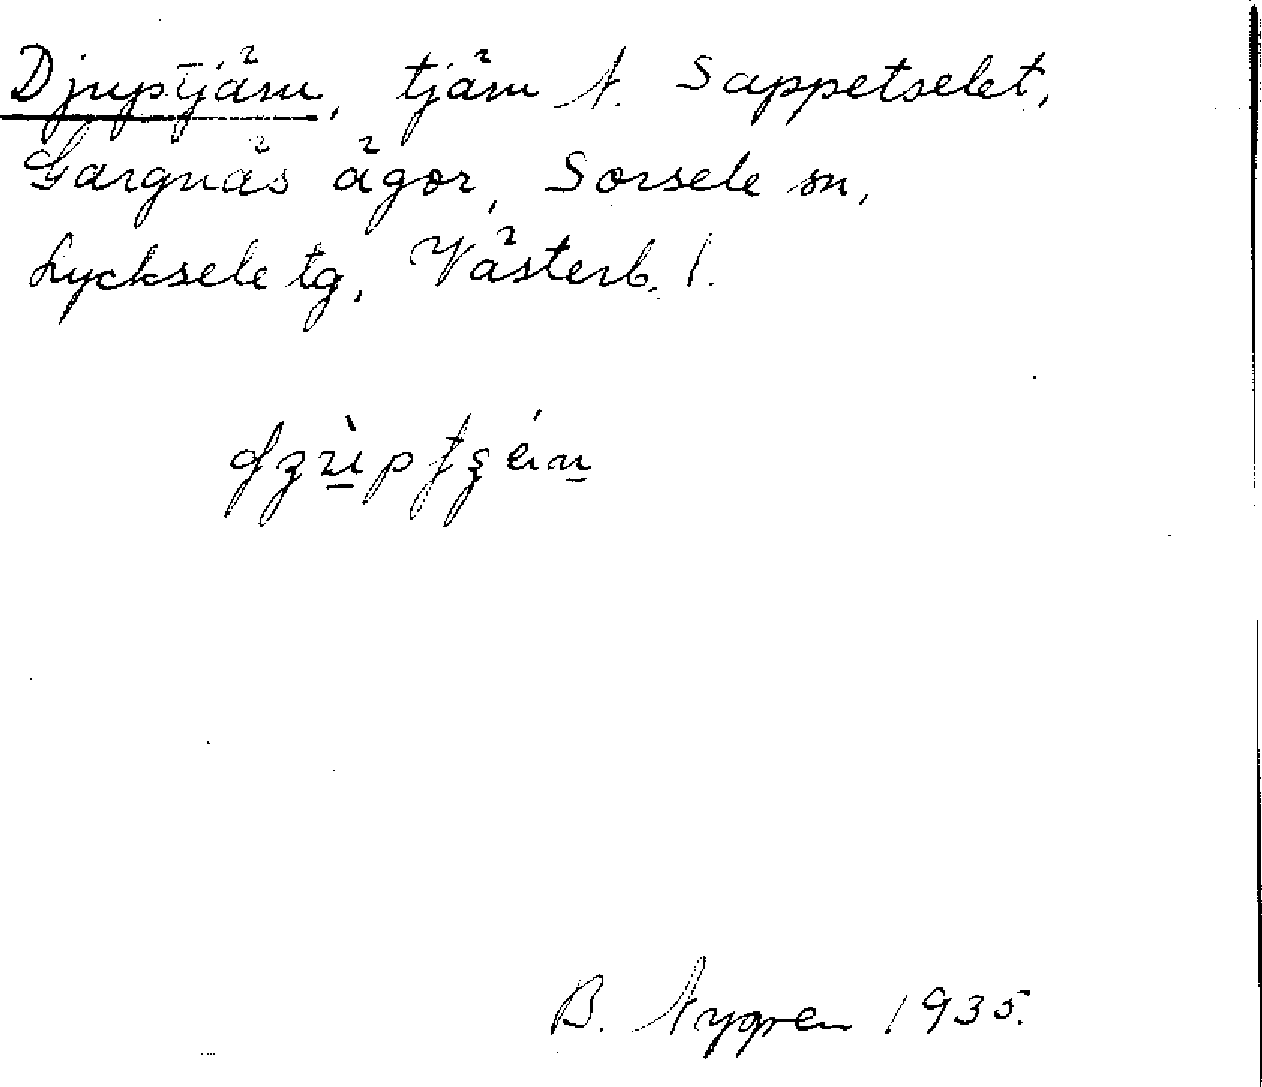 Djuptjärn, tjärn N. Sappetselet,
Gargnäs ägor, Sorsele sn,
Lycksele tg, Västerb. l.
B. Nygren 1935.